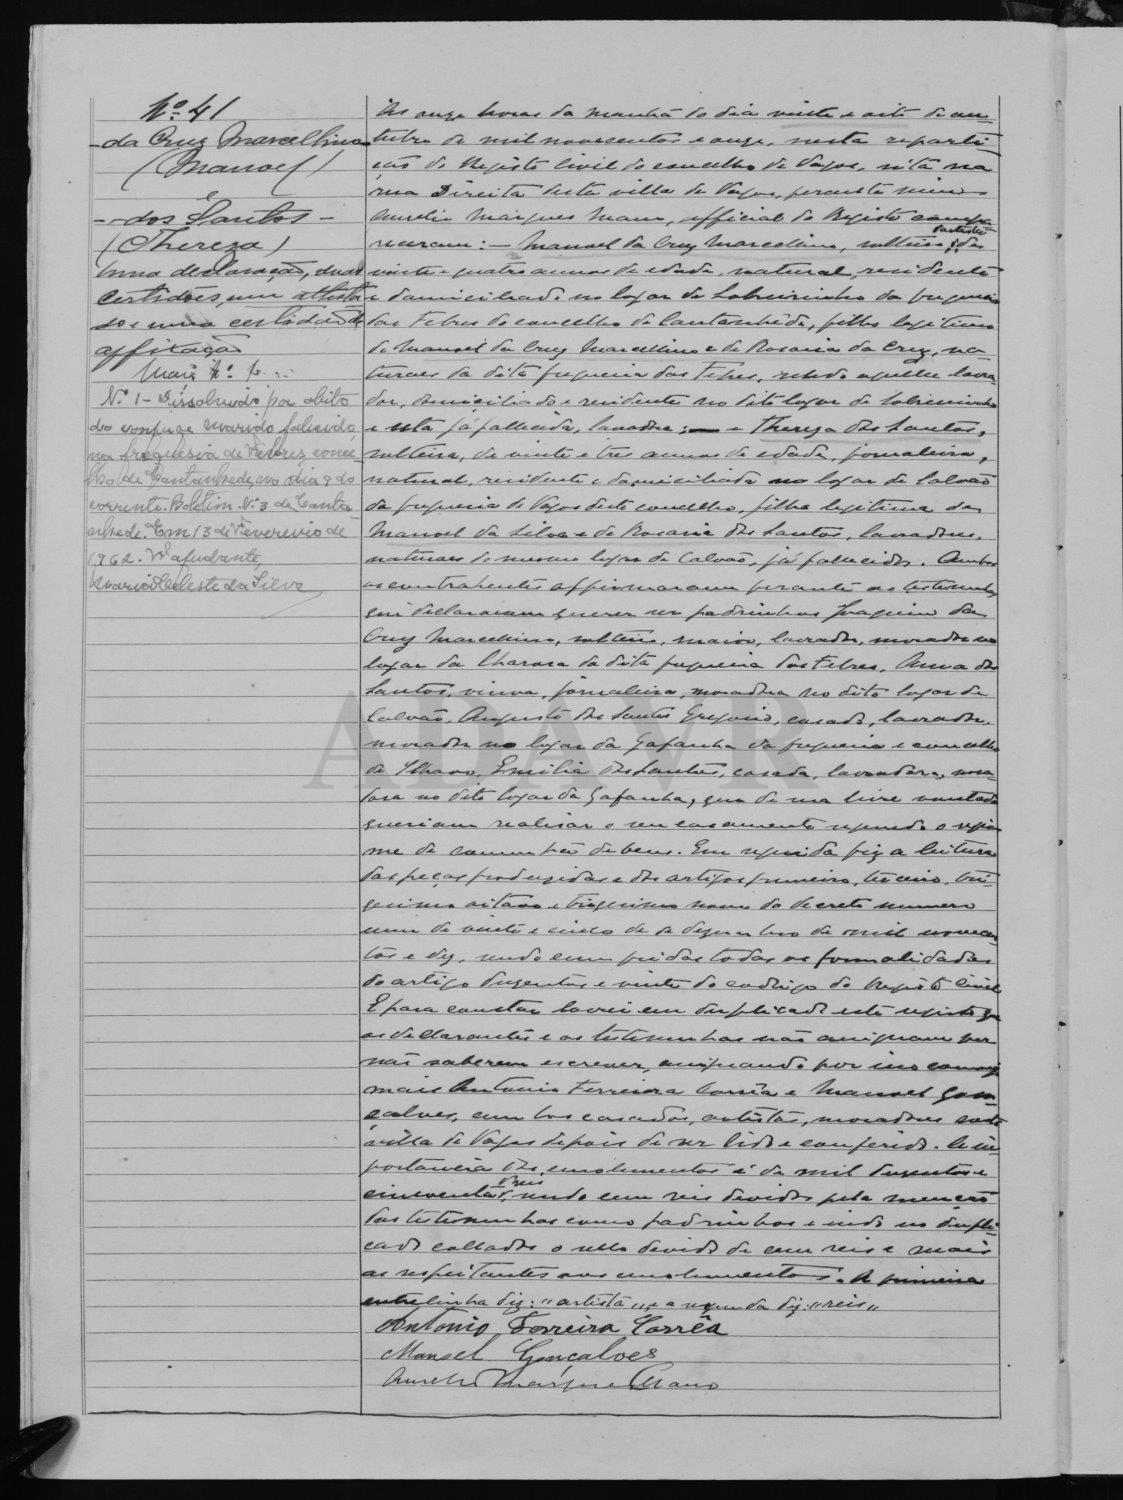 Nº 41
da Cruz Marcellino
(Manoel)
e
dos Santos
(Thereza)
Uma declaração, duas
certidões, um attesta
do e uma certidão de
affixação
Mais nº
N.º 1 - Dissolvido por obito
do conjuge marido falecido
na freguesia de Febres, conce
lho de Cantanhede, no dia 9 do
corrente. Boletim N.º 3 de Canta
nhede. Em 13 de Fevereiro de
1962. A ajudante,
Maria Celeste da Silva
Ás onze horas da manhã do dia vinte e oito de ou
tubro de mil novecentos e onze, nesta reparti
ção do Registo Civil do concelho de Vagos, sita na
rua Direita desta villa de Vagos, perante mim
Aurelio Marques Mano, official do Registo compa
receram: — Manoel da Cruz Marcelino, solteiro, artista, de
vinte e quatro annos de edade, natural, residente
e domiciliado no logar de Sobreirinho da freguesia
das Febres do concelho de Cantanhede, filho legitimo
de Manoel da Cruz Marcellino e de Rosaria da Cruz, na-
turaes da dita freguesia das Febres, sendo aquelle lavra
dor, domiciliado e residente no dito logar de Sobreirinho
e esta já fallecida, lavradora; — e Thereza dos Santos,
solteira, de vinte e tres annos de edade, jornaleira,
natural, residente e domiciliada no logar de Calvão
da freguesia de Vagos deste concelho, filha legitima de
Manoel da Silva e de Rosaria dos Santos, lavradores,
naturaes do mesmo logar de Calvão, já falecidos. Ambos
os contrahentes affirmaram perante as testemunhas
que declararam querer ser padrinhos Joaquim da
Cruz Marcellino, solteiro, maior, lavrador, morador no
logar da da dita freguesia das Febres, Anna dos
Santos, viuva, jornaleira, moradora no dito logar de
Calvão, Augusto dos Santos Gregorio, casado, lavrador,
morador no logar da Gafanha da freguesia e concelho
de Ilhavo, Emilia dos Santos, casada, lavradora, mora-
dora no dito logar da Gafanha, que de sua livre vontade
queriam realisar o seu casamento segundo o regi
me de communhão de bens. Em seguida fiz a leitura
das peças produzidas e dos artigos primeiro, terceiro, tri
gesimo oitavo e trigesimo nono do decreto numero
um de vinte e cinco de dezembro de mil novecen
tos e dez, sendo cumpridas todas as formalidades
do artigo duzentos e vinte do codigo do Registo Civil
E para constar lavrei em duplicado este registo que
os declarantes e as testemunhas não assignam por
não saberem escrever, assignando por isso comigo
mais Antonio Ferreira Corrêa e Manoel Gon
çalves, ambos casados, artistas, moradores nesta
villa de Vagos depois de ser lido e conferido. A im
portancia dos emolumentos é de mil duzentos e
cincoenta reis, sendo cem reis devidos pela menção
das testemunhas como padrinhos e indo no dupli
cado collados o sello devido de cem reis e mais
os respeitantes aos emolumentos. A primeira
entrelinha diz: "artista", e a segunda diz: "reis"
Antonio Ferreira Corrêa
Manoel Gonçalves
Aurelio Marques Mano
ADAVR